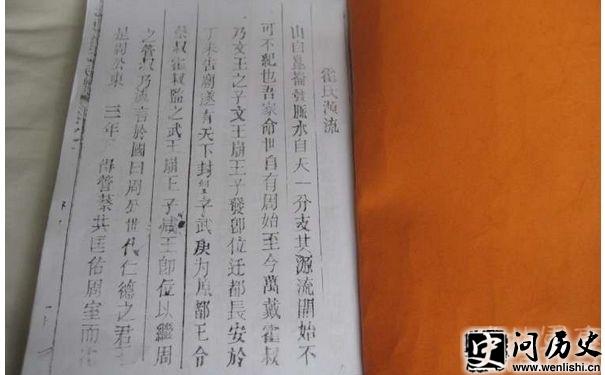 霍氏源流
山自崑崙發脈水自天一分支其源流開始不
可不紀也吾家命世自有周始至今萬戴霍叔
乃文王之子文王崩王子發卽位迁都長安於
丁未告廟遂有天下封子武庚为都王命
蔡叔霍叔監之武王崩王子成王卽位以繼周
之管叔乃流言於國曰周公世代仁德之君王
是周公東三年得管蔡共匡佑周室而
问历史
www.wenlishi.cn